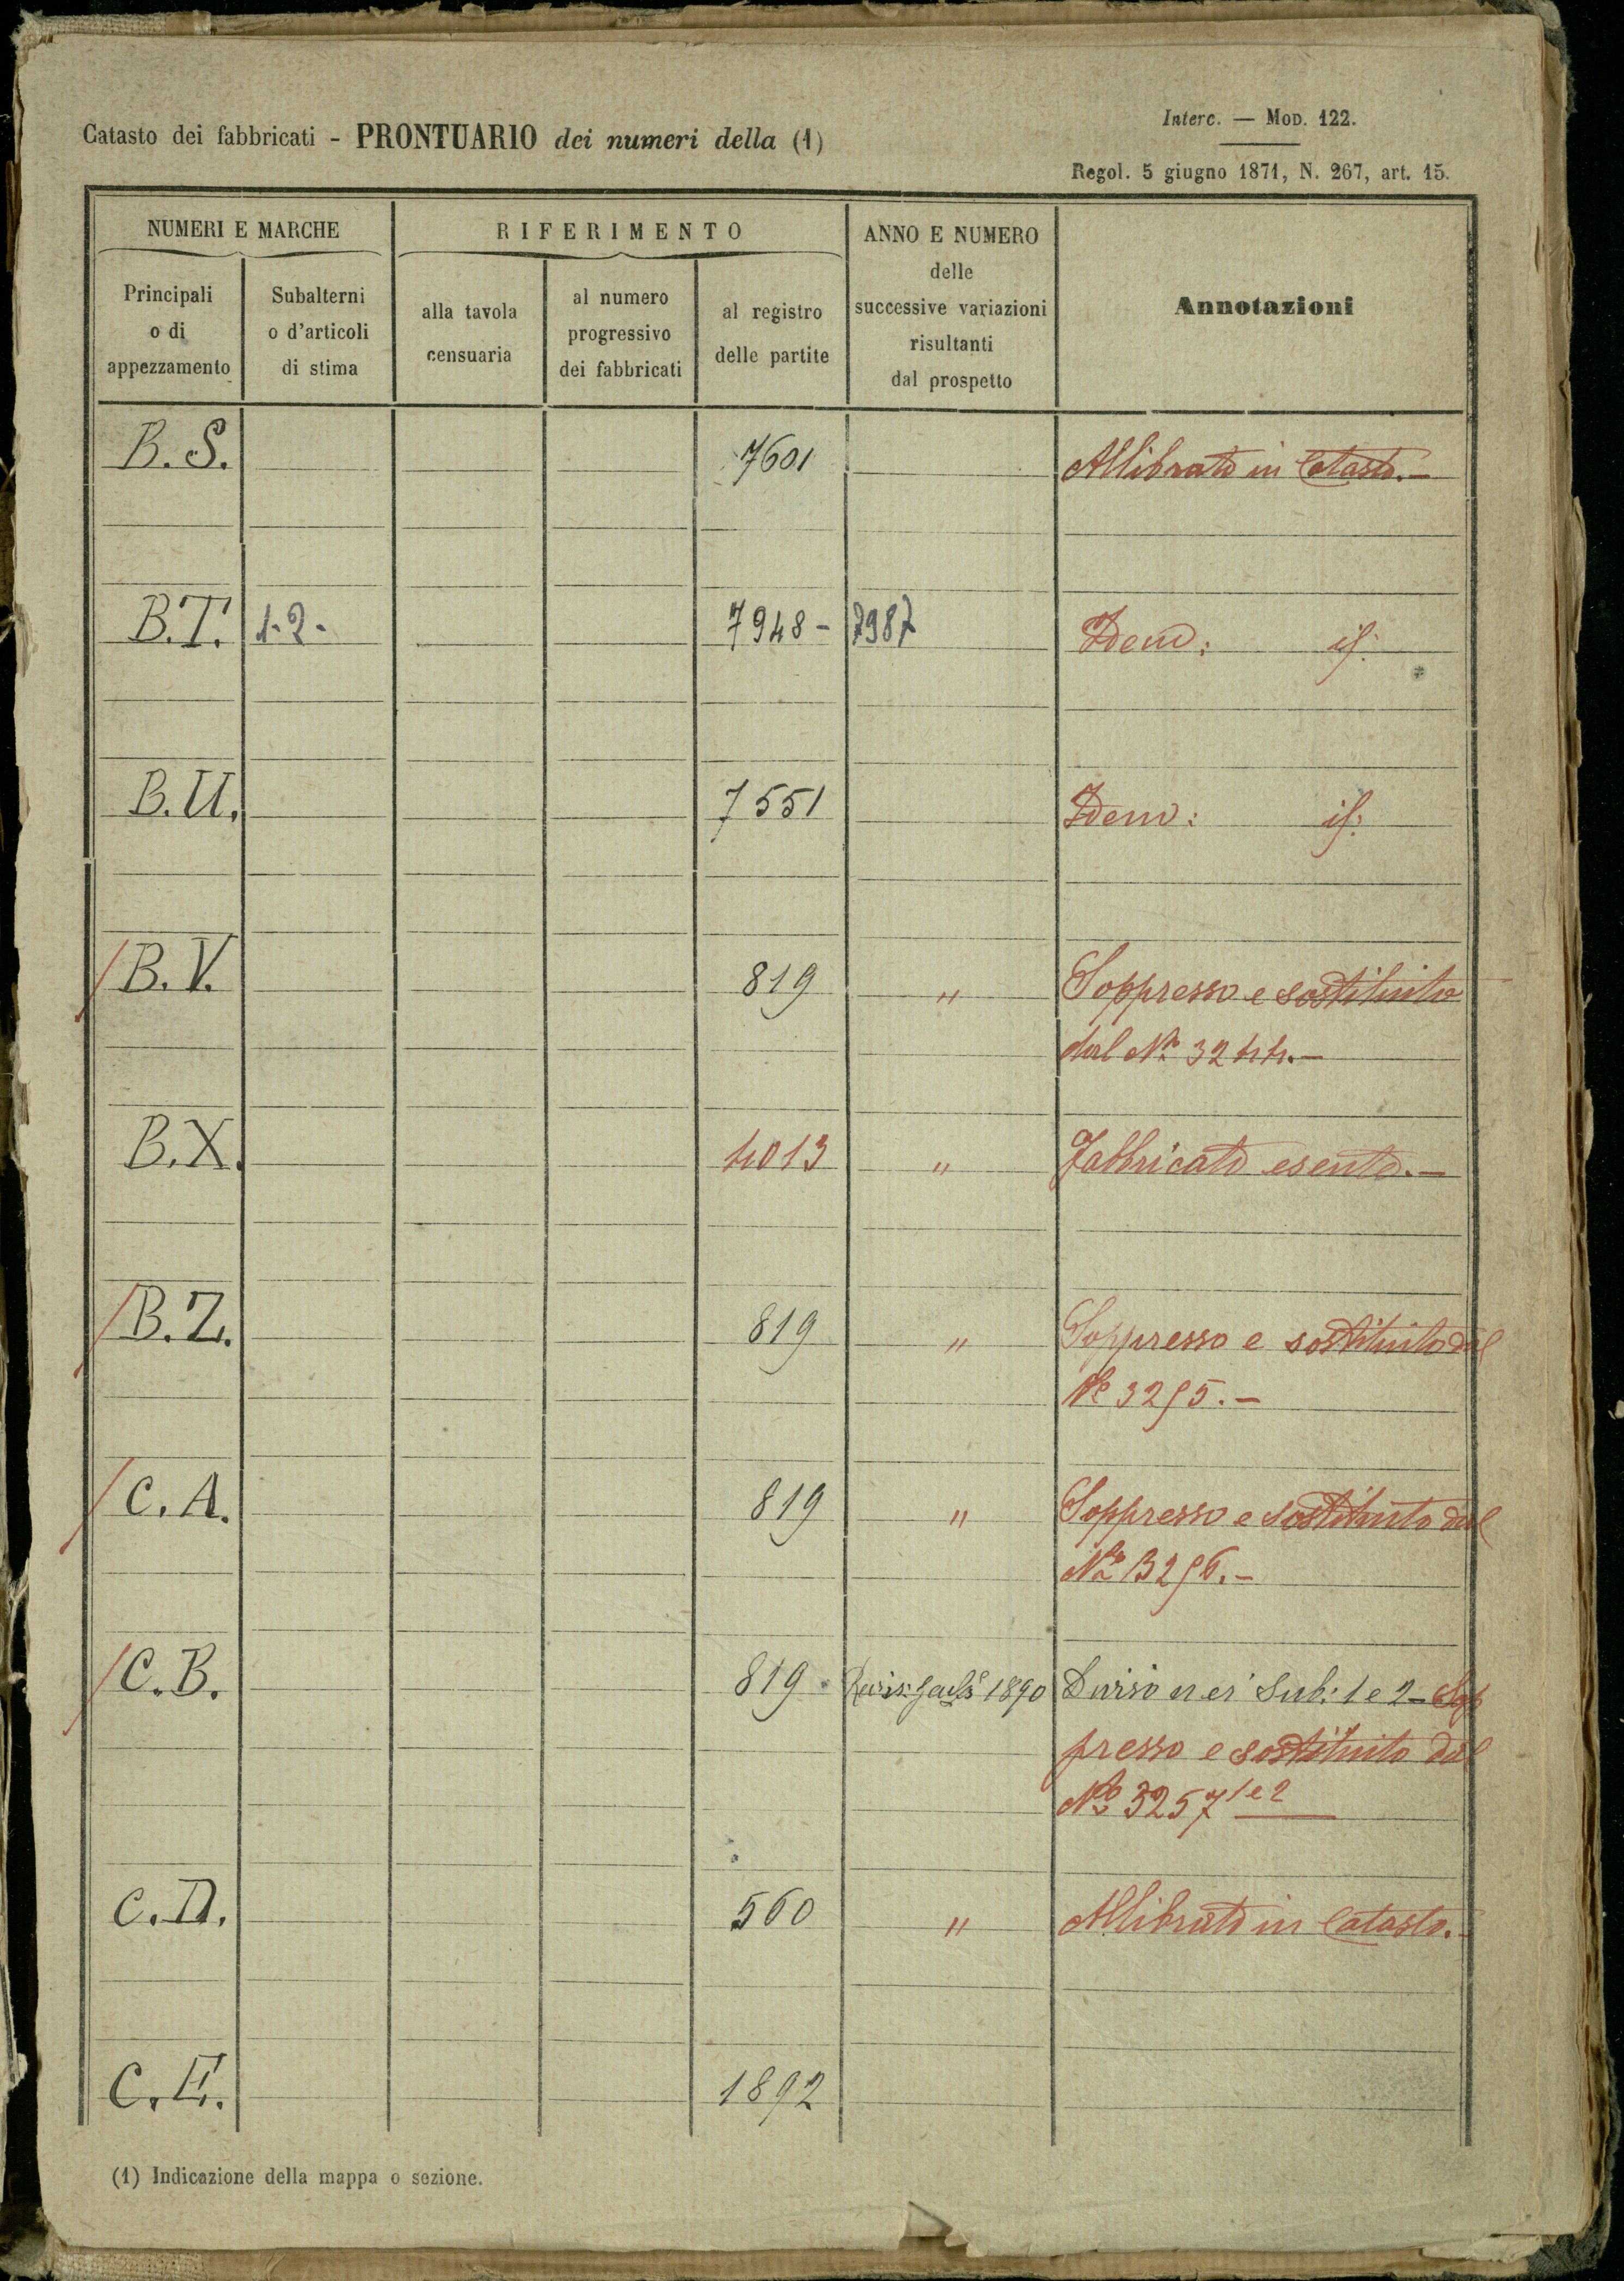 Catasto dei fabbricati - PRONTUARIO dei numeri della (1)
Interc. — MOD. 122.
Regol. 5 giugno 1871, N. 267, art. 15.
NUMERI E MARCHE
RIFERIMENTO
ANNO E NUMERO
delle
successive variazioni
risultanti
dal prospetto
Annotazioni
Principali
o di
appezzamento
Subalterni
o d'articoli
di stima
alla tavola
censuaria
al numero
progressivo
dei fabbricati
al registro
delle partite
B.S. 7601 Allibrato in Catasto.-
B.T. 1-2- 7948- 7987 Idem:
B.U. 7551 Idem:
B.V. 819 " Soppresso e sostituito
dal No 3244.-
B.X. 4013 " Fabbricato esente.-
B.Z. 819 " Soppresso e sostituito dal
No 3295.-
C.A. 819 " Soppresso e sostituito dal
No 3296.-
C.B. 819 1890 Diviso nei Sub: 1 e 2- Sop
presso e sostituito dal
No 3257 1 e 2
C.D. 560 " Allibrato in Catasto.-
C.E. 1892
(1) Indicazione della mappa o sezione.